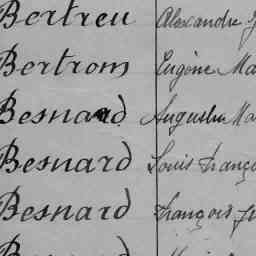 Bertreu Alexandre
Bertrom Eugène Ma
Besnard Auguste Ma
Besnard Louis Franço
Besnard François Ju